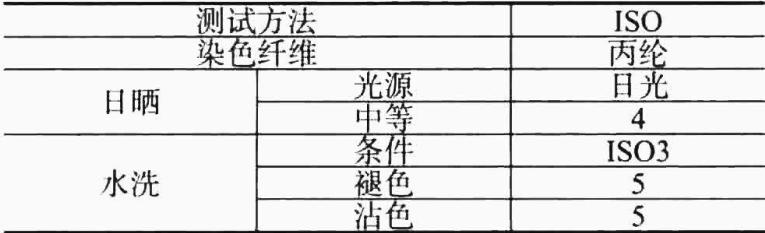 测试方法 ISO
染色纤维 丙纶
日晒 光源 日光
中等 4
水洗 条件 ISO3
褪色 5
沾色 5